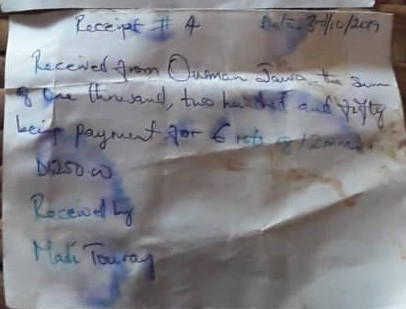 Receipt # 4 Date. 3rd/10/2019
Received from Ousman Jawo the sum
of one thousand, two hundred and fifty
being payment for 6 rods of 12mm.
D1250.00
Received by
Madi Touray